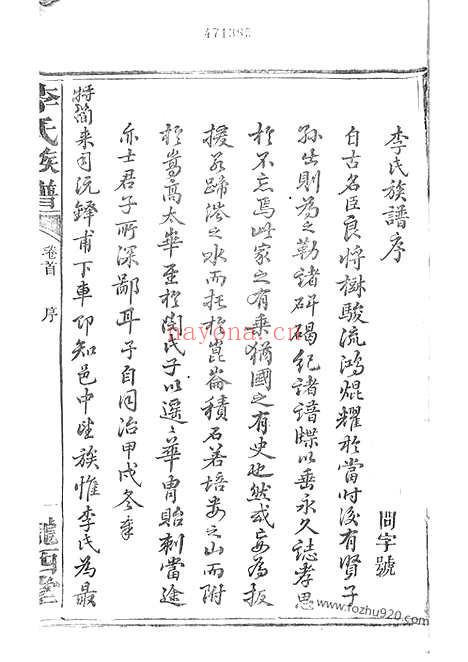 471385
李氏族譜序
問字號
自古名臣良將樹駿流鴻焜耀於當時後有賢子
孫出則為之勒諸碑碣紀諸譜牒以垂永久誌孝思
於不忘焉此家之有乘猶國之有史也然或妄為扳
援若蹄涔之水而託於崑崙積石若培婁之山而附
於嵩高太華至於閥氏子以遥遥華胄貽刺當途
亦士君子所深鄙耳予自同治甲戌冬奉
特簡來司沅鐸甫下車即知邑中望族惟李氏為最
李氏族譜
卷首
序
nayona.cn
www.fozhu920.com